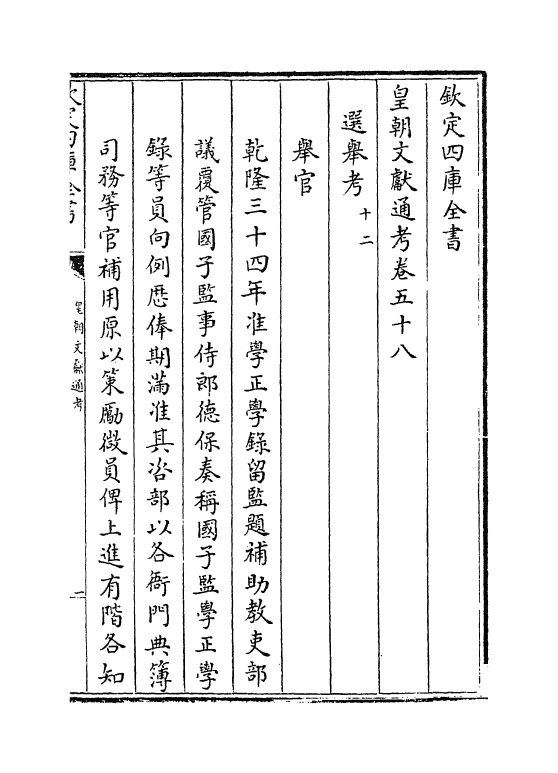 欽定四庫全書
皇朝文獻通考卷五十八
選舉考十二
舉官
乾隆三十四年准學正學錄留監題補助教吏部
議覆管國子監事侍郎德保奏稱國子監學正學
錄等員向例歴俸期滿准其咨部以各衙門典簿
司務等官補用原以策勵微員俾上進有階各知
欽定四庫全書
皇朝文獻通考
一